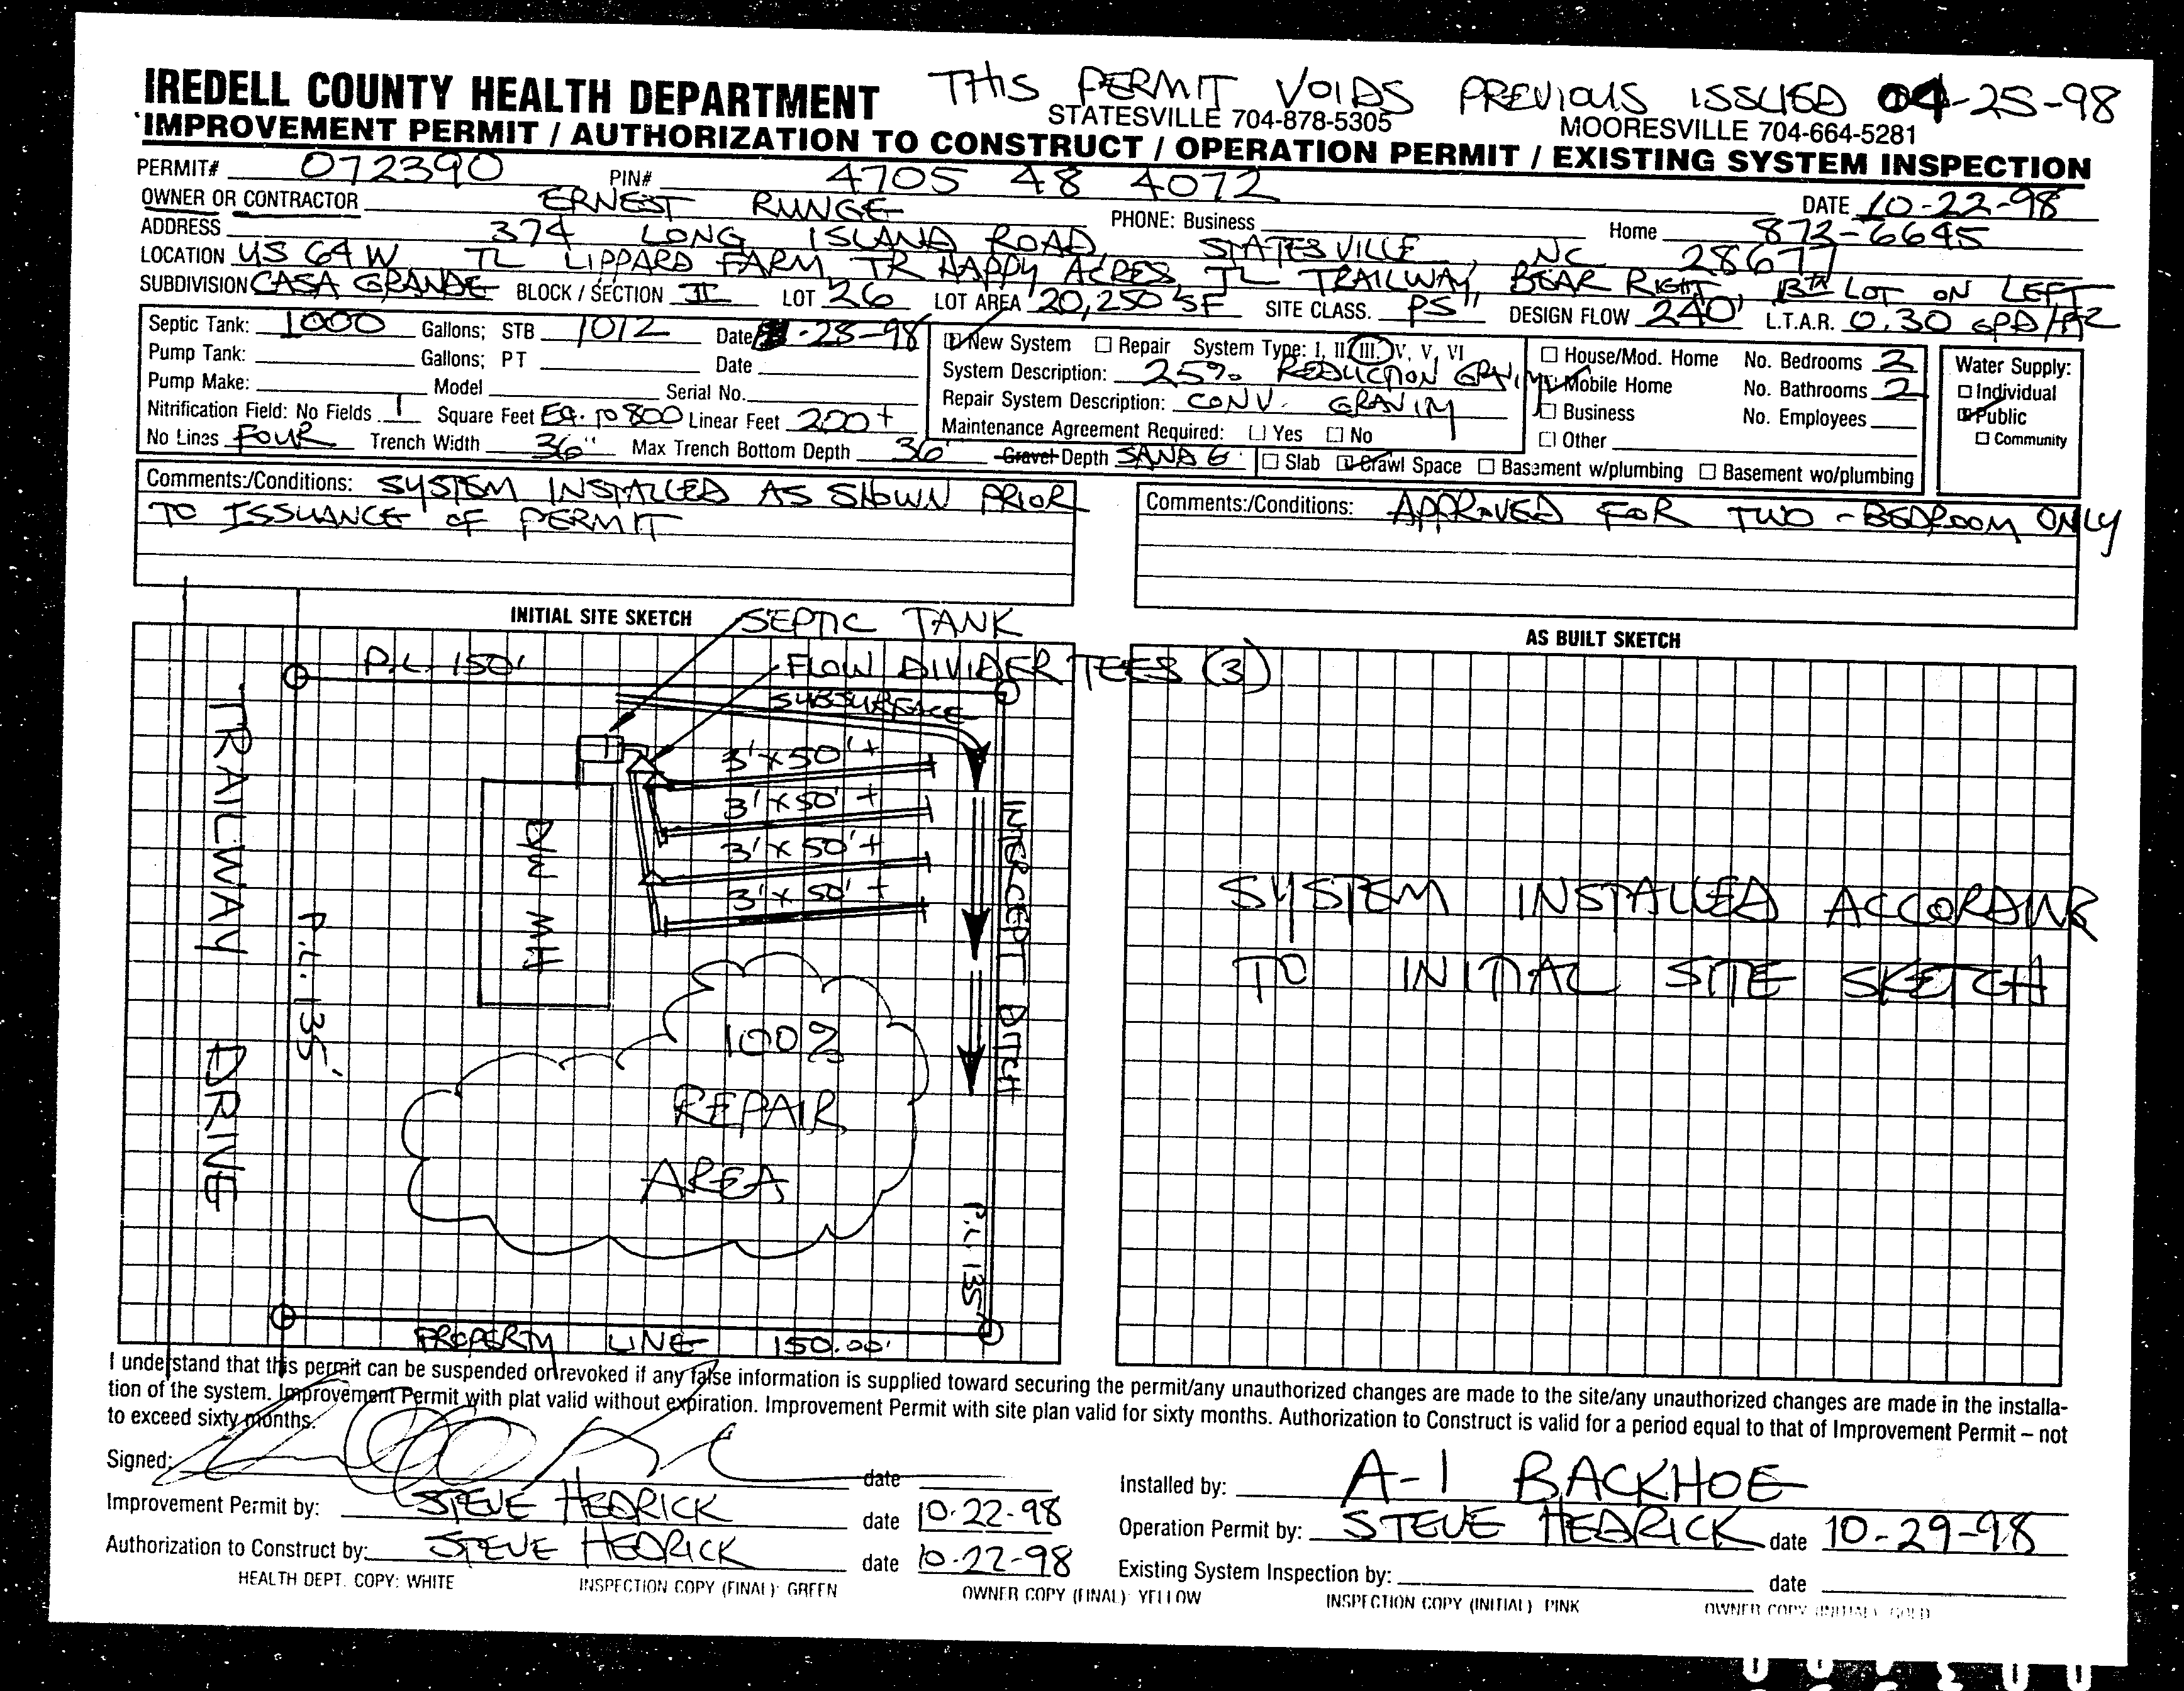 IREDELL COUNTY HEALTH DEPARTMENT
THIS PERMIT VOIDS PREVIOUS ISSUED 04-25-98
STATESVILLE 704-878-5305 MOORESVILLE 704-664-5281
IMPROVEMENT PERMIT / AUTHORIZATION TO CONSTRUCT / OPERATION PERMIT / EXISTING SYSTEM INSPECTION
PERMIT# 072390 PIN# 4705 48 4072 DATE 10-22-98
OWNER OR CONTRACTOR ERNEST RUNGE PHONE: Business Home 873-6645
ADDRESS 374 LONG ISLAND ROAD, STATESVILLE, NC 28677
LOCATION US 64 W TL LIPPARD FARM, TR HAPPY ACRES, TL TRAILWAY, BEAR RIGHT LOT ON LEFT
SUBDIVISION CASA GRANDE BLOCK / SECTION II LOT 26 LOT AREA 20,250 SF SITE CLASS. PS DESIGN FLOW 240 L.T.A.R. 0.30 GPD/FT2
Septic Tank: 1000 Gallons; STB 1012 Date -23-98
Pump Tank: Gallons; PT Date
Pump Make: Model Serial No.
Nitrification Field: No Fields 1 Square Feet EQ. TO 800 Linear Feet 200+
No Lines FOUR Trench Width 36" Max Trench Bottom Depth 36" Gravel Depth
New System Repair System Type: I, II, III, IV, V, VI
System Description: 25% REDUCTION GRAVITY
Repair System Description: CONV. GRAVITY
Maintenance Agreement Required: Yes No
Slab Crawl Space Basement w/plumbing Basement wo/plumbing
House/Mod. Home No. Bedrooms 2
Mobile Home No. Bathrooms 2
Business No. Employees
Other
Water Supply:
Individual
Public
Community
Comments:/Conditions: SYSTEM INSTALLED AS SHOWN PRIOR
TO ISSUANCE OF PERMIT
Comments:/Conditions: APPROVED FOR TWO-BEDROOM ONLY
INITIAL SITE SKETCH
SEPTIC TANK
P.L. 150'
FLOW DIVIDER TEES (3)
SUBSURFACE
3'x50'+
3'x50'+
3'x50'+
3'x50'+
INTERCEPT DITCH
TRAILWAY DRIVE
P.L. 135'
100%
REPAIR
AREA
P.L. 135'
PROPERTY LINE 150.00'
AS BUILT SKETCH
SYSTEM INSTALLED ACCORDING
TO INITIAL SITE SKETCH
I understand that this permit can be suspended or revoked if any false information is supplied toward securing the permit/any unauthorized changes are made to the site/any unauthorized changes are made in the installa-
tion of the system. Improvement Permit with plat valid without expiration. Improvement Permit with site plan valid for sixty months. Authorization to Construct is valid for a period equal to that of Improvement Permit – not
to exceed sixty months.
Signed: date
Improvement Permit by: STEVE HEDRICK date 10-22-98
Authorization to Construct by: STEVE HEDRICK date 10-22-98
Installed by: A-1 BACKHOE
Operation Permit by: STEVE HEDRICK date 10-29-98
Existing System Inspection by: date
HEALTH DEPT. COPY: WHITE INSPECTION COPY (FINAL): GREEN OWNER COPY (FINAL): YELLOW INSPECTION COPY (INITIAL) PINK OWNER COPY (INITIAL) GOLD